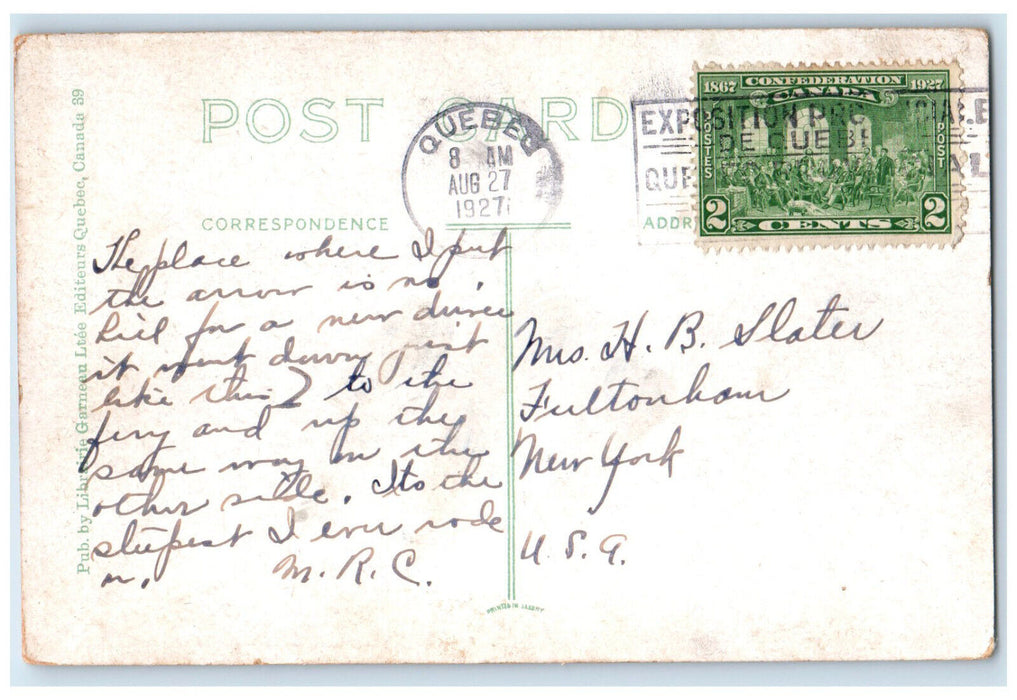 POST CARD
QUEBEC
8 AM
AUG 27
1927
EXPOSITION
DE QUEBE
QUE
1867 CONFEDERATION 1927
CANADA
POSTES
POST
2 CENTS 2
CORRESPONDENCE
ADDR
Pub. by Librairie Garneau Ltée Editeurs Quebec, Canada 39
The place where I put
the arrow is no
hill for a new driver
it went down just
like this Z to the
ferry and up the
same way on the
other side. Its the
steepest I ever rode
on. M. R. C.
Mrs. H. B. Slater
Fultonham
New York
U. S. A.
PRINTED IN